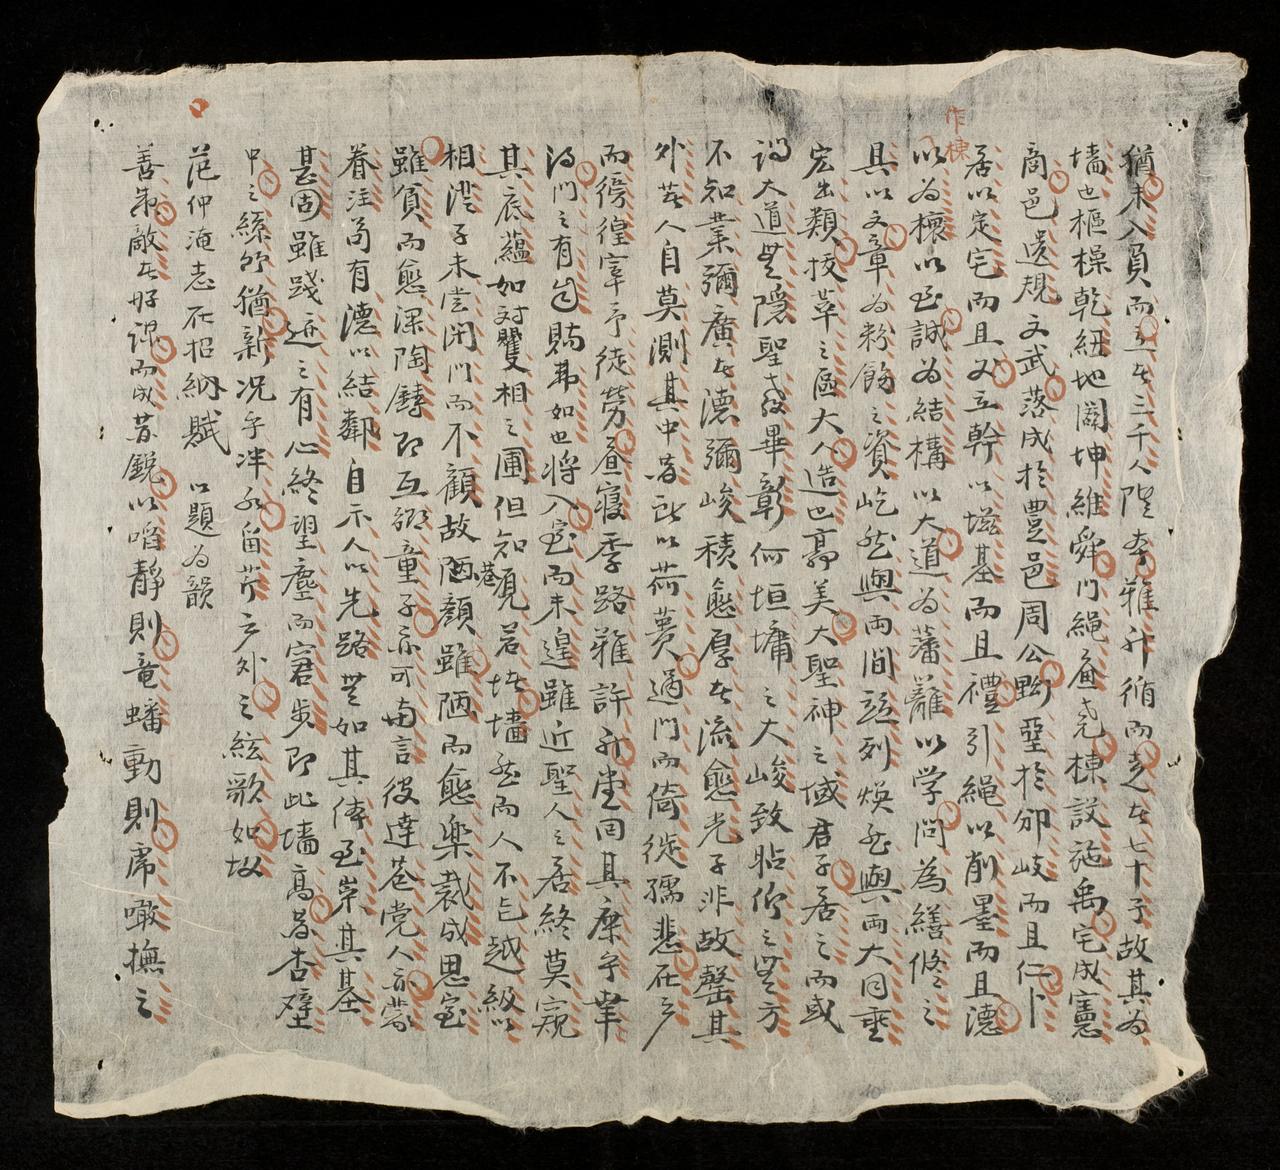 作棟
猶未入員而立者三千人陞本難升循而走者七十子故其為
墻也樞橾乾紐地闢坤維舜門繩直堯棟設施禹宅成憲
商邑遺規文武落成於豊邑周公黝堊於邠岐而且仁卜
居以定宅而且义立幹以滋基而且禮引繩以削墨而且德
以為櫰以至誠為結構以大道為藩籬以学問為繕修之
具以文章為粉飾之資屹然與兩間並列煥然與兩大同垂
宏出類拔萃之區大人造也為美大聖神之域君子居之而或
謂大道無隱聖德畢彰何垣墉之大峻致瞻仰之無方
不知業彌廣者德彌峻積愈厚者流愈光子非故罄其
外其人自莫測其中者所以荷蕢過門而倚徙孺悲在户
而徬徨宰予徒勞昼寝季路雖許升堂回其庶乎輩
得門之有自賜弗如也将入室而未遑雖近聖人之居終莫窺
其底蘊如対矍相之圃但知巷覓若者墻然而人不乞越級以
相從子未尝闭門而不顧故陋顏雖陋而愈楽裁成思室
雖貧而愈深陶鑄即互鄉童子亦可与言彼達巷党人亦蒙
眷注苟有德以結鄰自示人以先路無如其俸至崇其基
甚固雖踐迹之有心終望塵而窘步即此墻高者杏壁
中之絲竹猶新况乎泮水留芹户外之絃歌如故
范仲淹志在招納賦　以題為韻
善策敵者好謀而成昔鋭以啗靜則竜蟠動則席瞰撫之